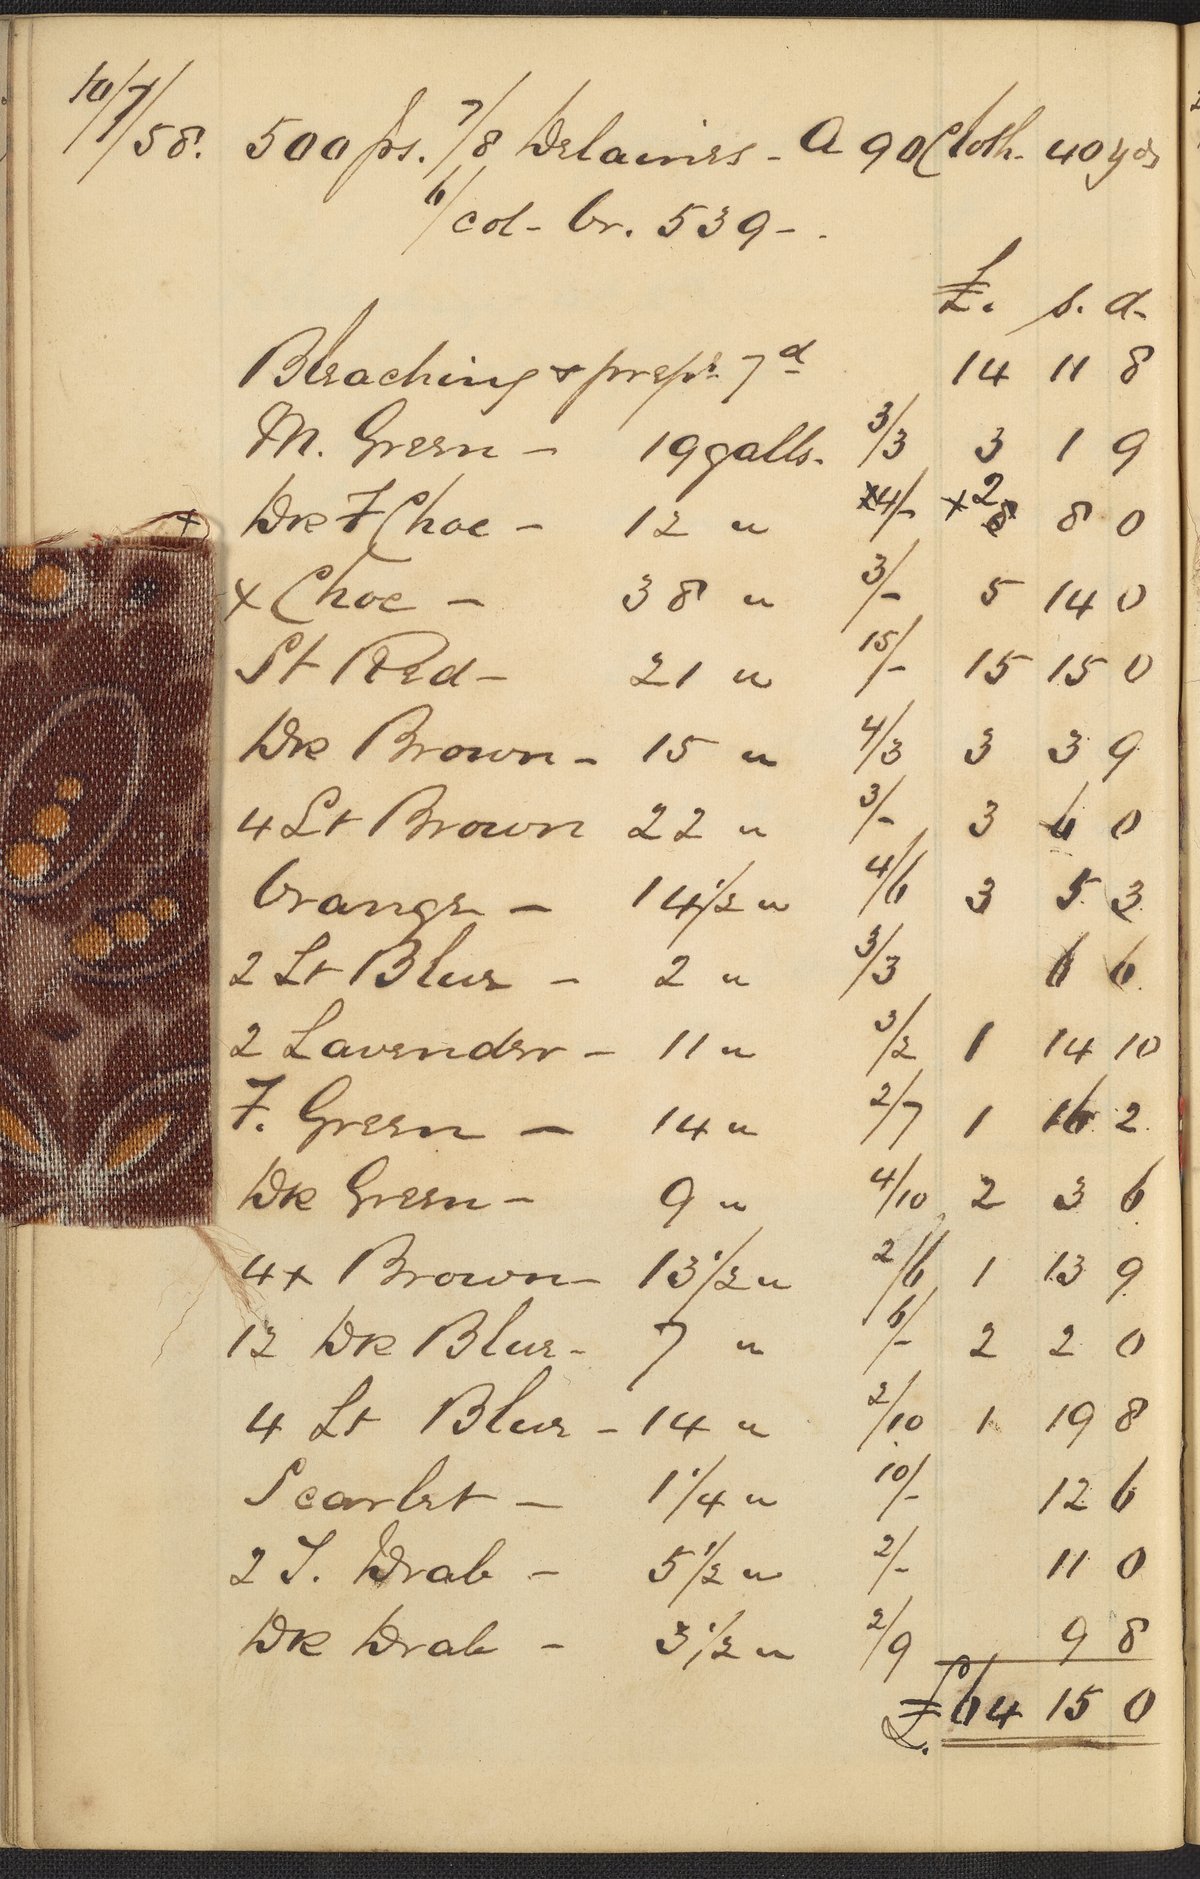 10/7/58. 500 ps. 7/8 Delaines - A 90 Cloth. 40 yds
6/col - Or. 539 -
£. s. d.
Bleaching & prepg 7d 14 11 8
M. Green - 19 galls. 3/3 3 1 9
x Dk F Choc - 12 " x4/- x 2 8 0
x Choc - 38 " 3/- 5 14 0
St Red - 21 " 15/- 15 15 0
Dk Brown - 15 " 4/3 3 3 9
4 Lt Brown 22 " 3/- 3 6 0
Orange - 14 1/2 " 4/6 3 5 3
2 Lt Blue - 2 " 3/3 6 6
2 Lavender - 11 " 3/2 1 14 10
F. Green - 14 " 2/7 1 16 2
Dk Green - 9 " 4/10 2 3 6
4x Brown - 13 1/2 " 2/6 1 13 9
12 Dk Blue - 7 " 6/- 2 2 0
4 Lt Blue - 14 " 2/10 1 19 8
Scarlet - 1 1/4 " 10/- 12 6
2 S. Drab - 5 1/2 " 2/- 11 0
Dk Drab - 3 1/2 " 2/9 9 8
£64 15 0